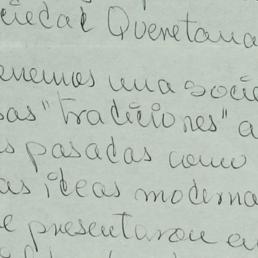 ciedad Queretana
enemos una socie
sas "tradiciones" a
s pasadas como
as ideas moderna
e presentaron en